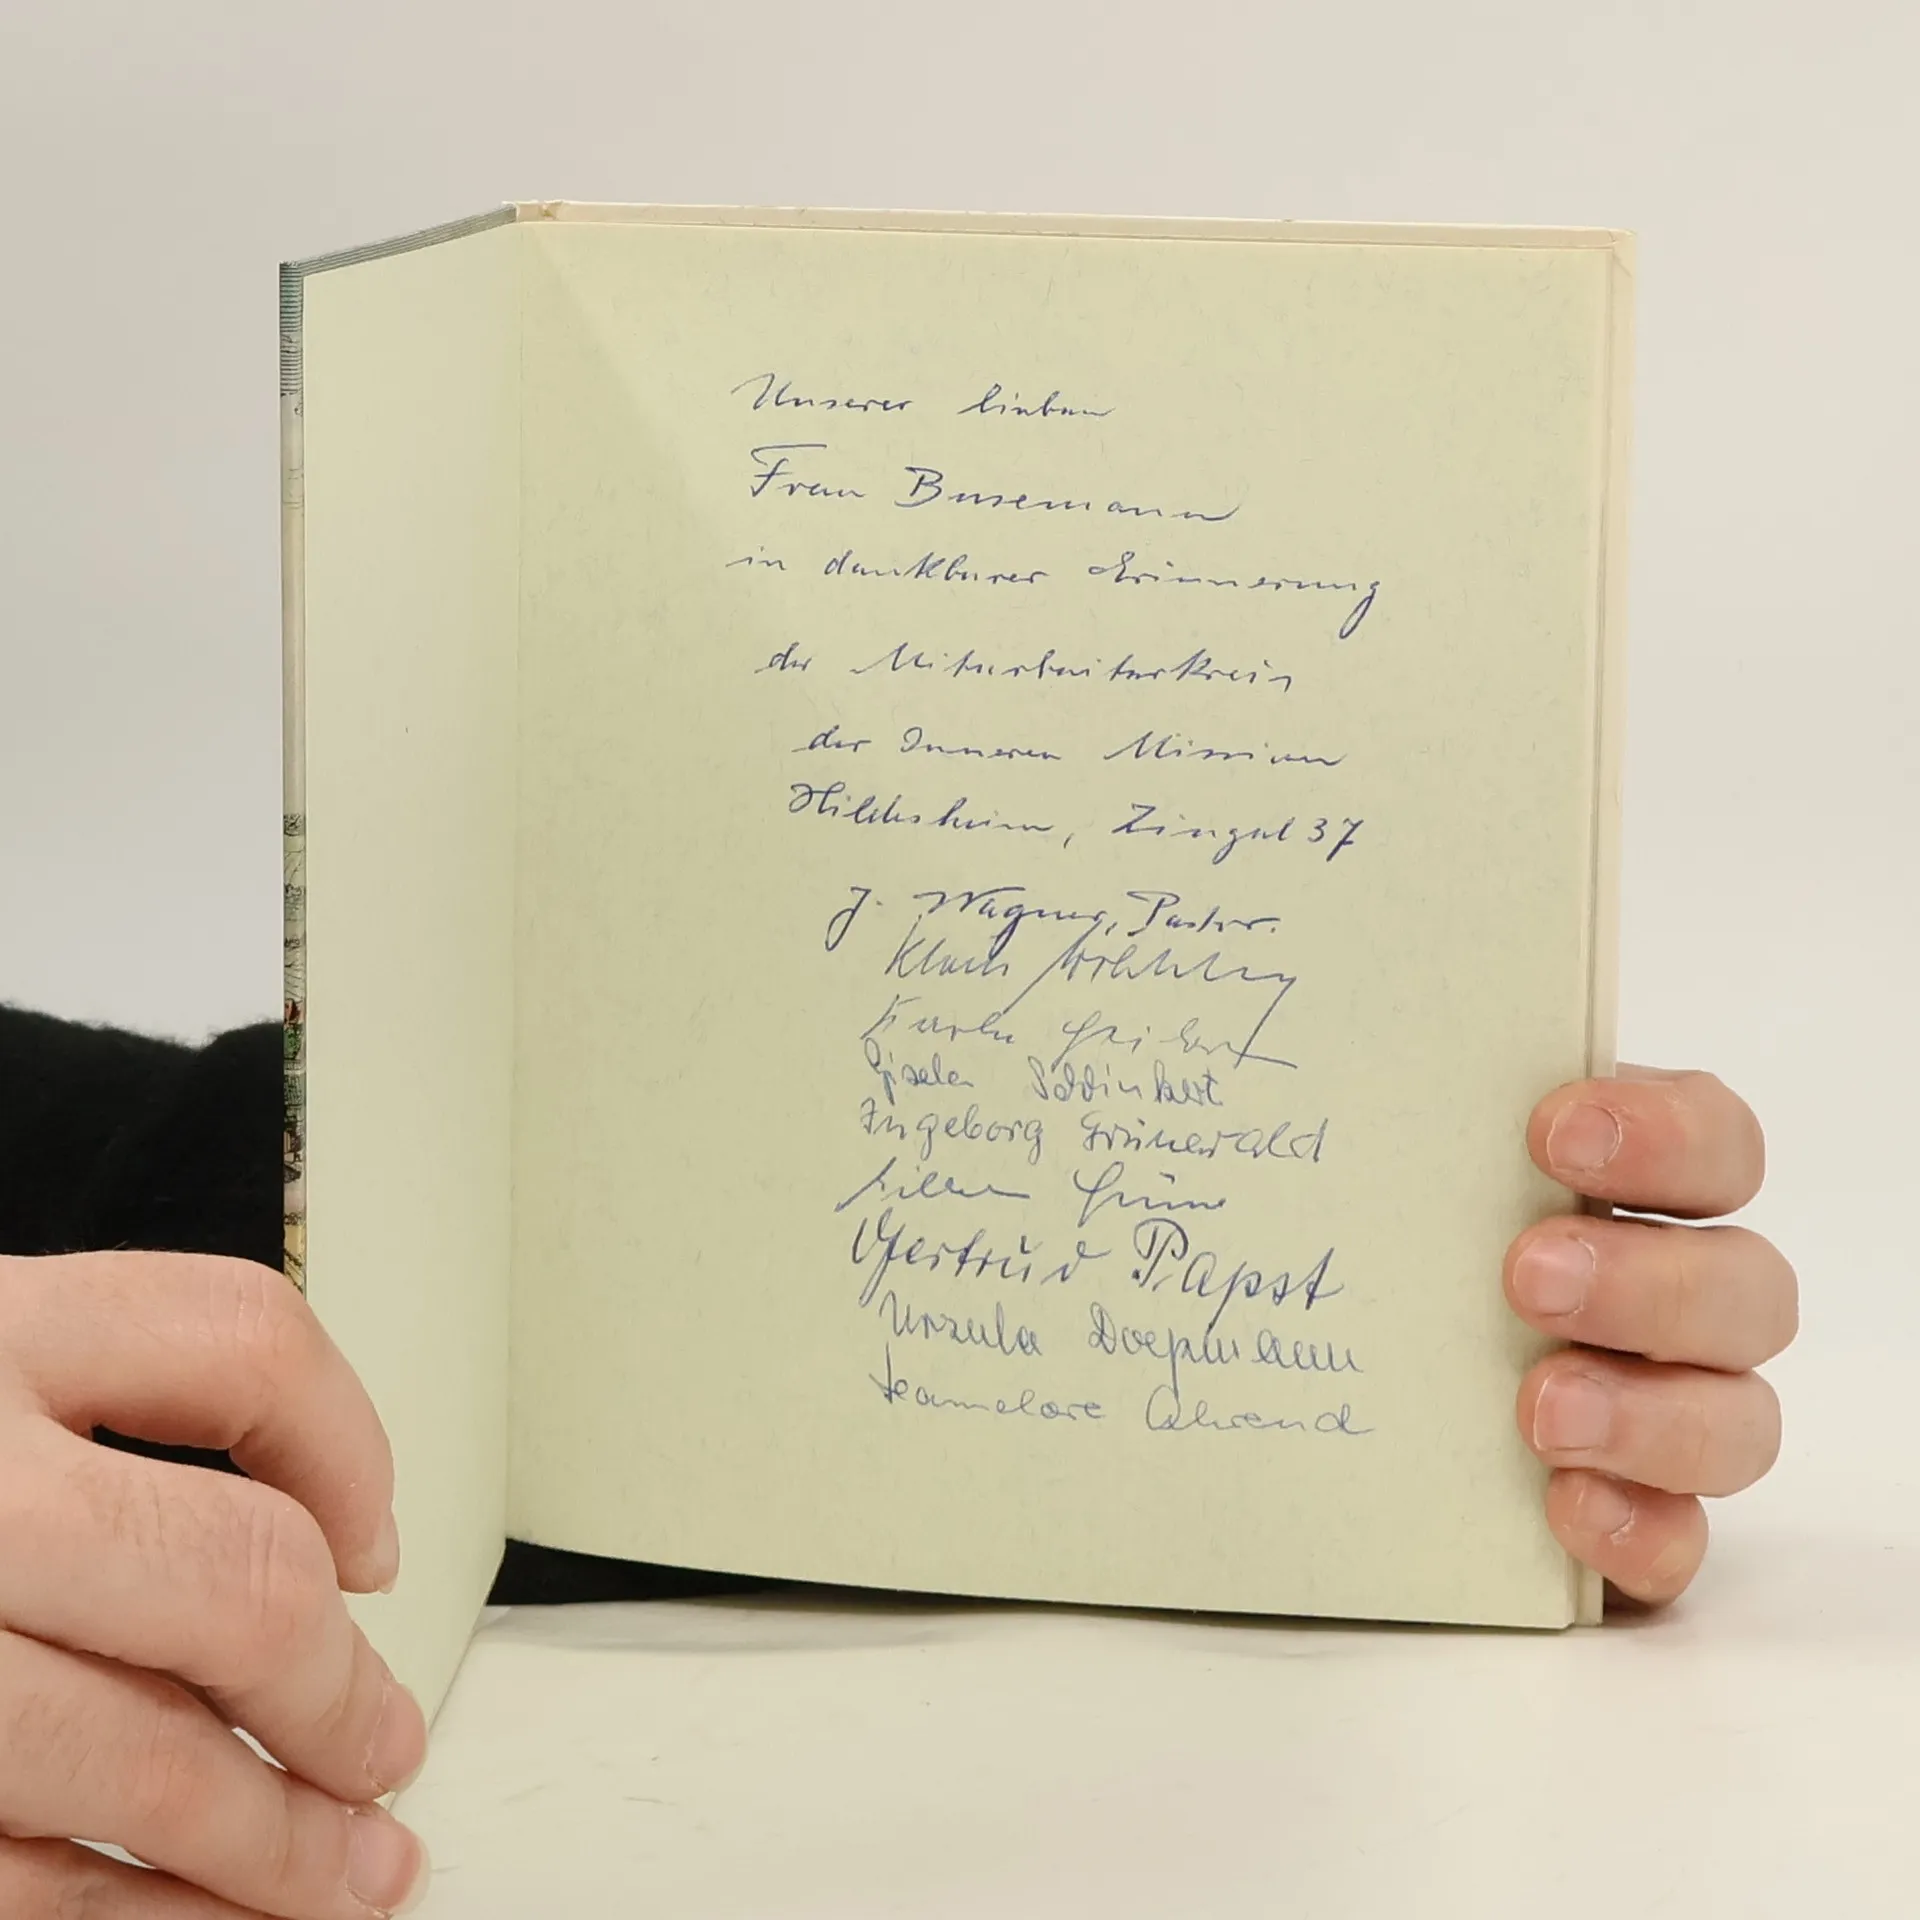 Unserer lieben
Frau Busemann
in dankbarer Erinnerung
der Mitarbeiterkreis
der Inneren Mission
Hildesheim, Zingel 37
J. Wagner, Pastor.
Klaus
Karla
Gisela
Ingeborg Grünewald
Grüne
Gertrud Papst
Ursula Doepmann
Hannelore Ahrend